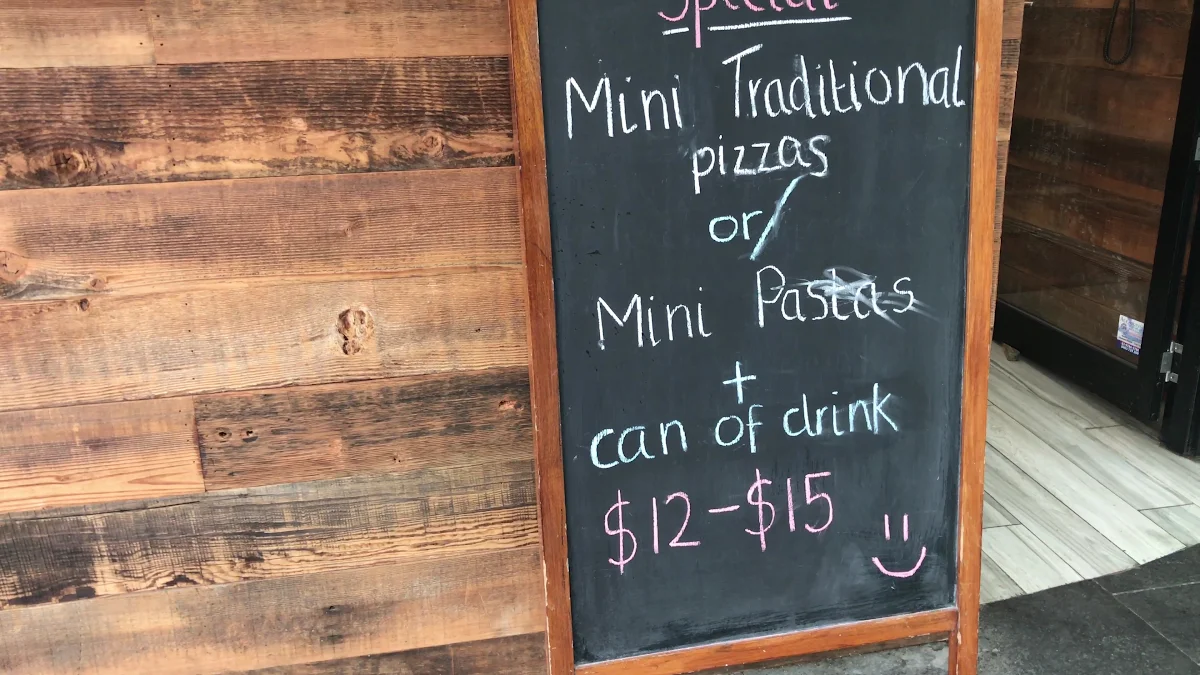 Special
Mini Traditional
pizzas
or/
Mini Pastas
+
can of drink
$12-$15